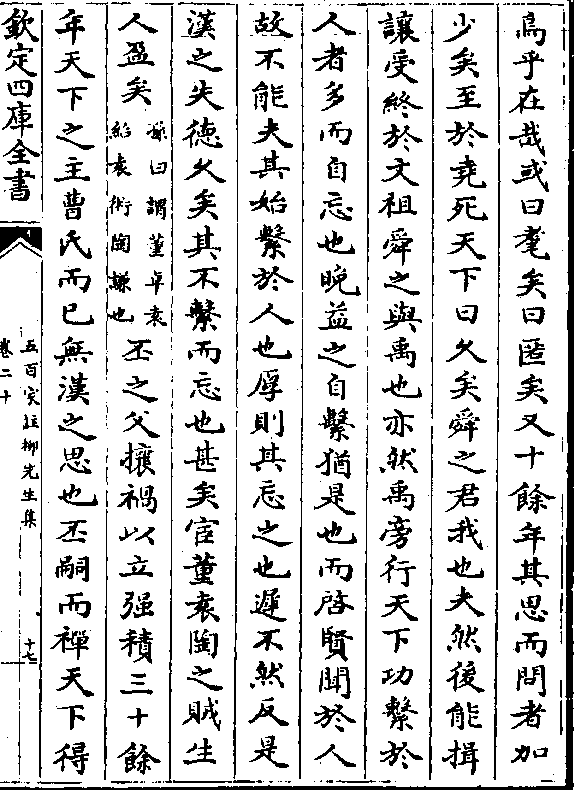 爲乎在哉或曰耄矣曰匿矣又十餘年其思而問者加
少矣至於堯死天下曰久矣舜之君我也夫然後能揖
讓受終於文祖舜之與禹也亦然禹旁行天下功繫於
人者多而自忘也晚益之自繫猶是也而啓賢聞於人
故不能夫其始繫於人也厚則其忘之也遲不然反是
漢之失德久矣其不繫而忘也甚矣宦董袁陶之賊生
人盈矣孫曰謂董卓袁
紹袁術陶謙也丕之父攘禍以立强積三十餘
年天下之主曹氏而已無漢之思也丕嗣而禪天下得
欽定四庫全書
五百家註柳先生集
卷二十
十七